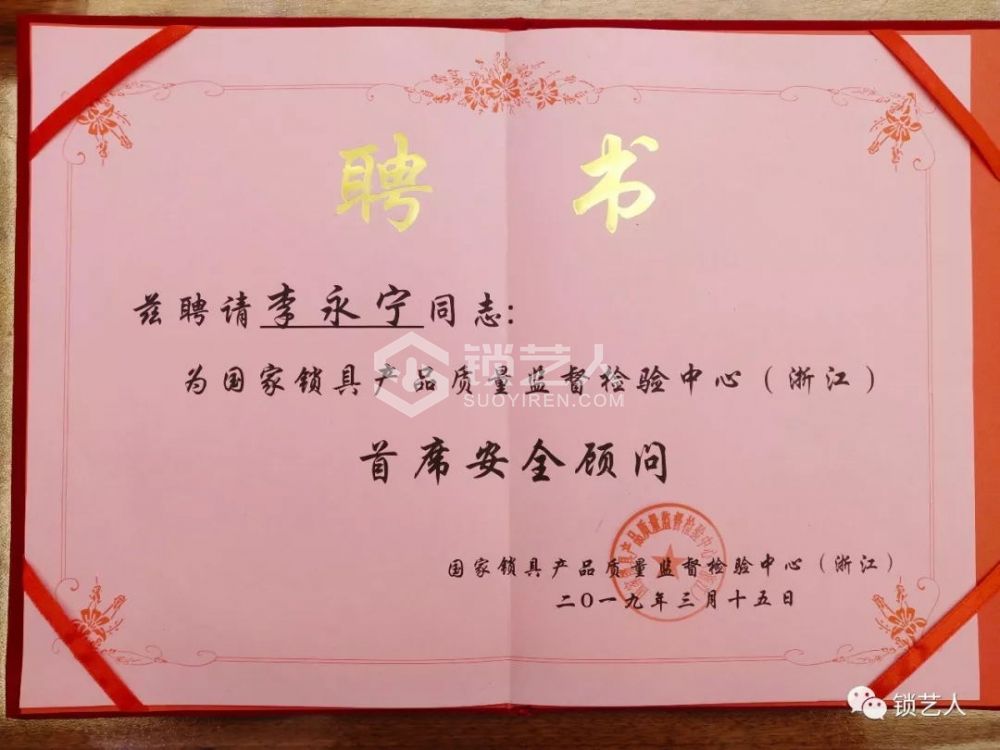 聘书
兹聘请李永宁同志:
为国家锁具产品质量监督检验中心(浙江)
锁艺人
SUOYIREN.COM
首席安全顾问
国家锁具产品质量监督检验中心(浙江)
国家锁具产品质量监督检验中心(浙江)
二〇一九年三月十五日
锁艺人